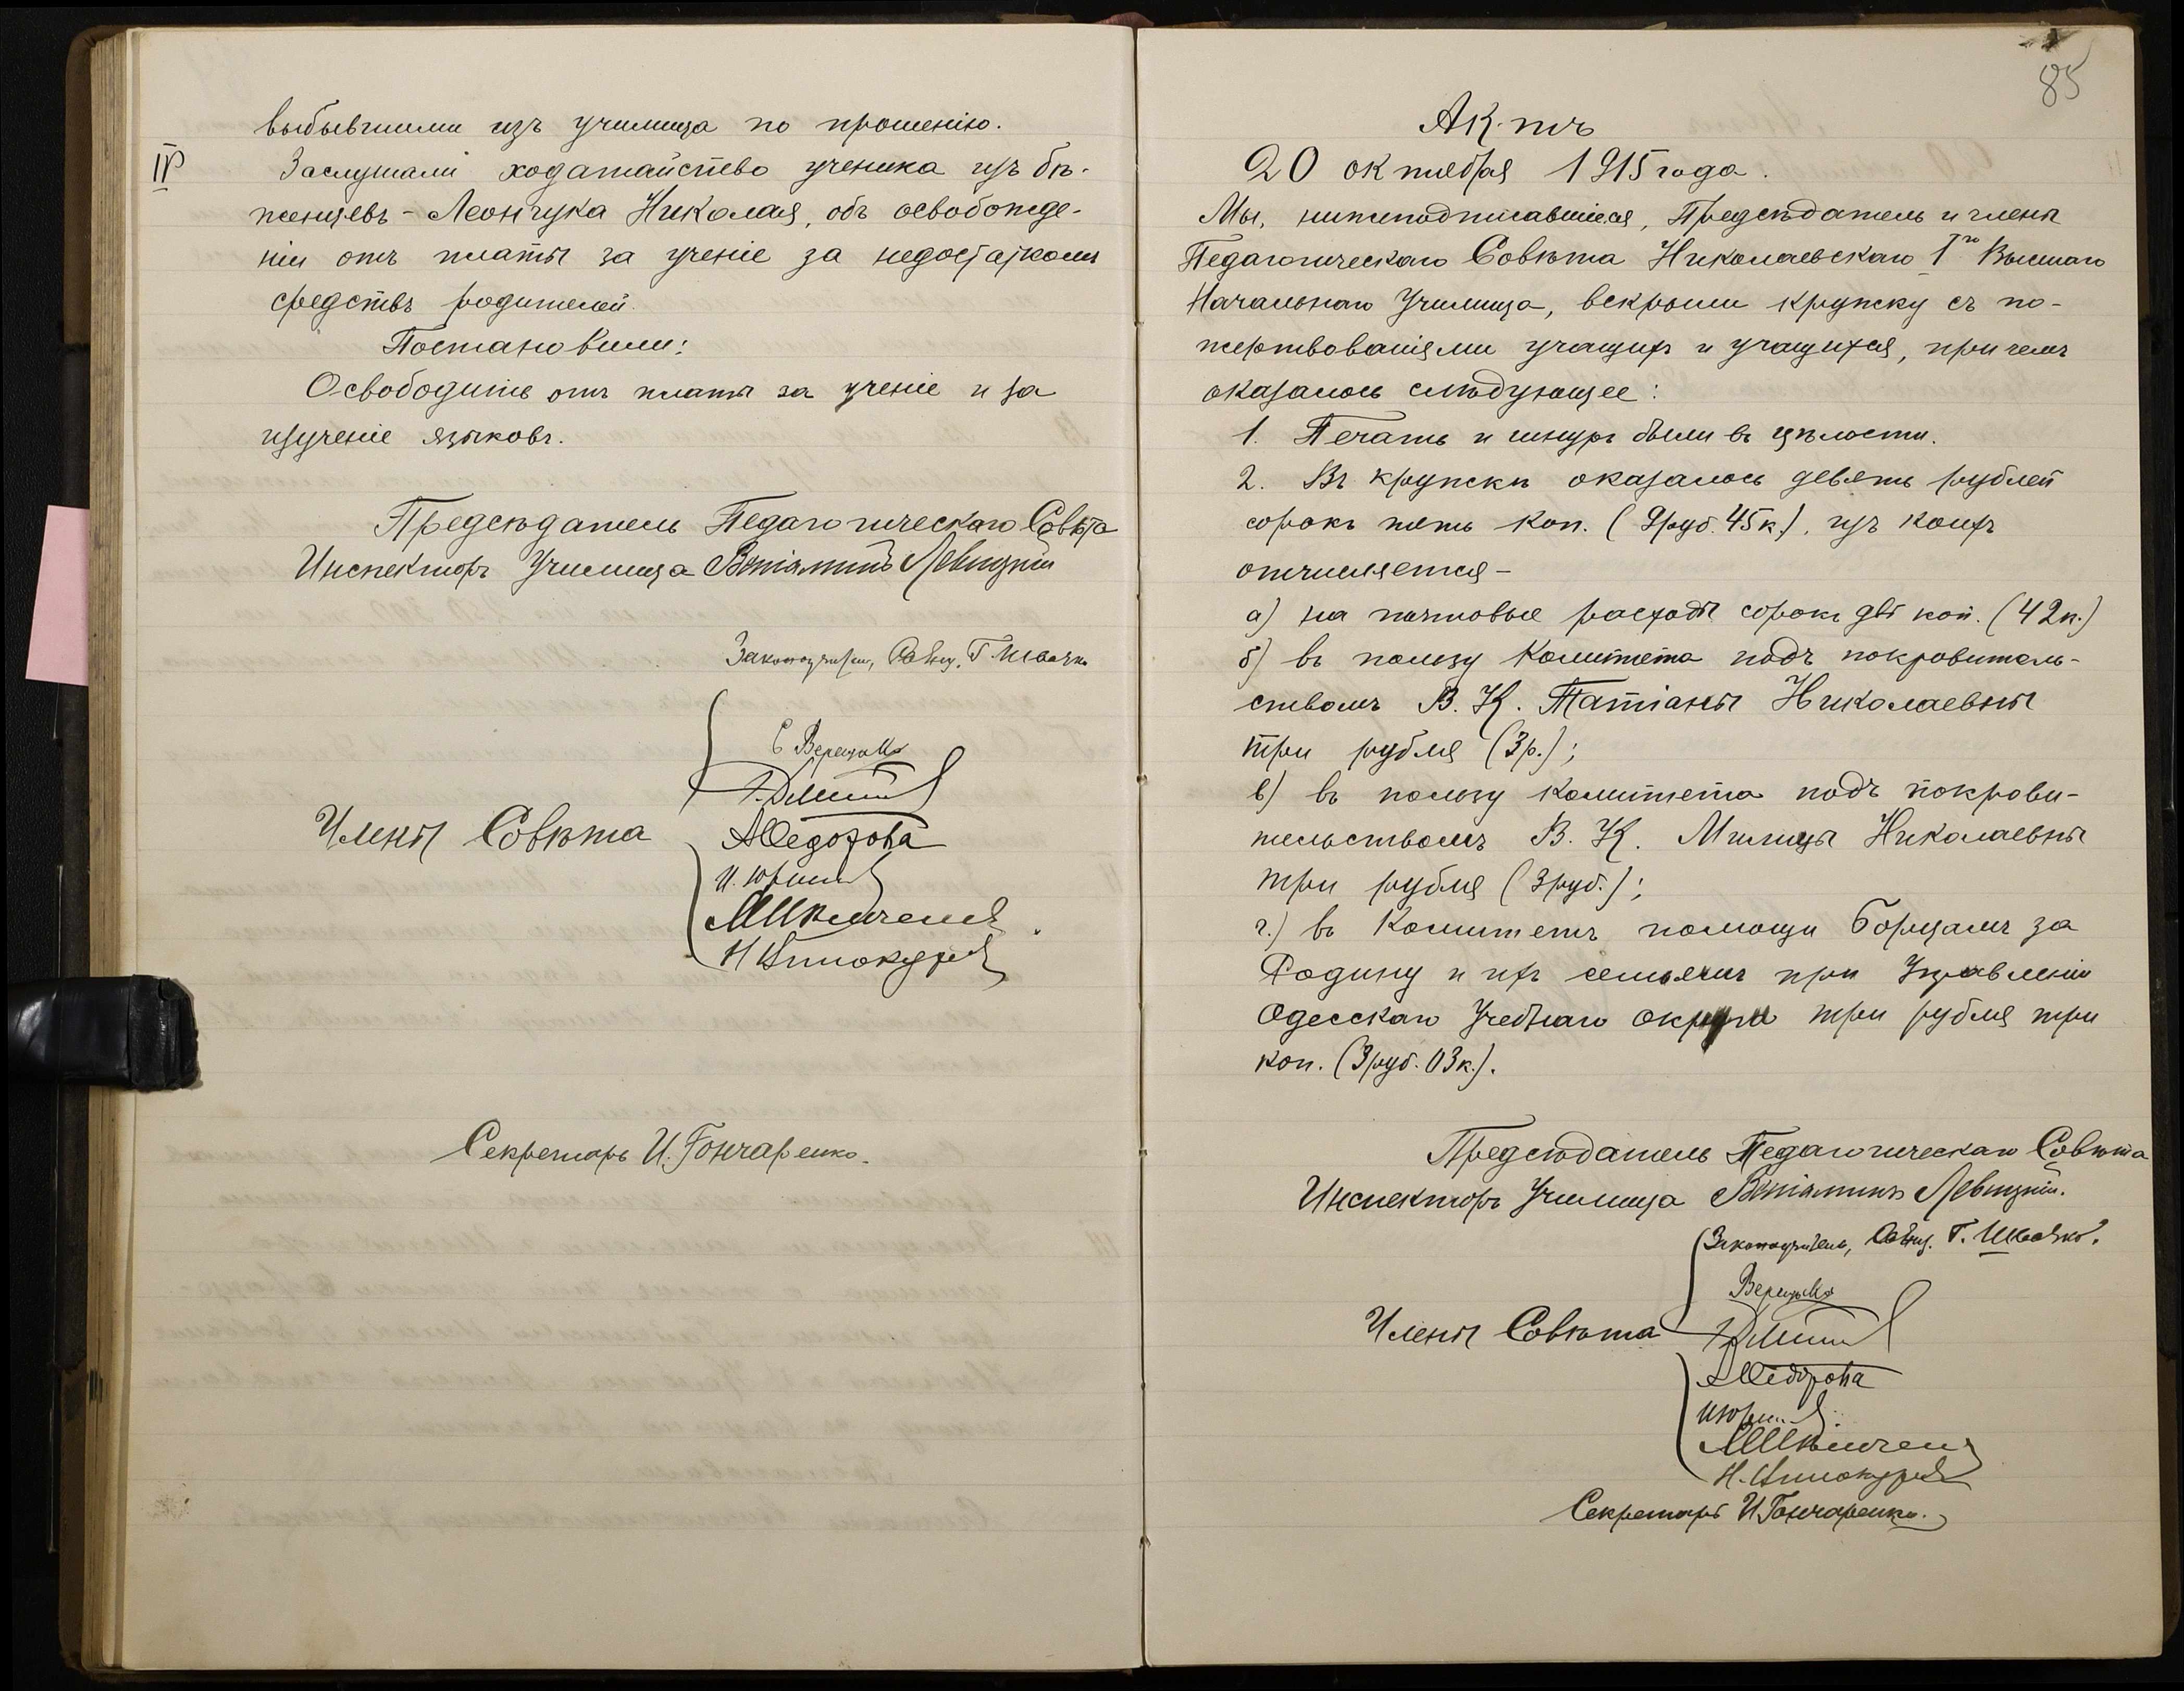 выбывшими изъ училища по прошенію.
IV Заслушали ходатайство ученика изъ бѣ-
женцевъ - Леончука Николая, объ освобожде-
ніи отъ платы за ученіе за недостаткомъ
средствъ родителей.
Постановили:
Освободить отъ платы за ученіе и за
изученіе языковъ.
Предсѣдатель Педагогическаго Совѣта
Инспекторъ Училища Веніаминъ Левицкій
Законоучитель, Свящ. Г. Швачко
Члены Совѣта
А Ѳедорова
Н Винокуровъ
Секретарь И. Гончаренко.
85
Актъ
20 октября 1915 года.
Мы, нижеподписавшіеся, Предсѣдатель и члены
Педагогическаго Совѣта Николаевскаго I го Высшаго
Начальнаго Училища, вскрыли кружку съ по-
жертвованіями учащихъ и учащихся, при чемъ
оказалось слѣдующее:
1. Печать и шнуръ были въ цѣлости.
2. Въ кружкѣ оказалось девять рублей
сорокъ пять коп. (9 руб. 45 к.), изъ коихъ
отчисляется -
а) на почтовые расходы сорокъ двѣ коп. (42 к.)
б) въ пользу Комитета подъ покровитель-
ствомъ В. К. Татіаны Николаевны
три рубля (3 р.);
в) въ пользу комитета подъ покрови-
тельствомъ В. К. Милицы Николаевны
три рубля (3 руб.);
г.) въ Комитетъ помощи Борцамъ за
Родину и ихъ семьямъ при Управленіи
Одесскаго Учебнаго округа три рубля три
коп. (3 руб. 03 к.).
Предсѣдатель Педагогическаго Совѣта
Инспекторъ Училища Веніаминъ Левицкій.
Законоучитель, Свящ. Г. Швачко.
Члены Совѣта
А Ѳедорова
Н. Винокуровъ
Секретарь И. Гончаренко.